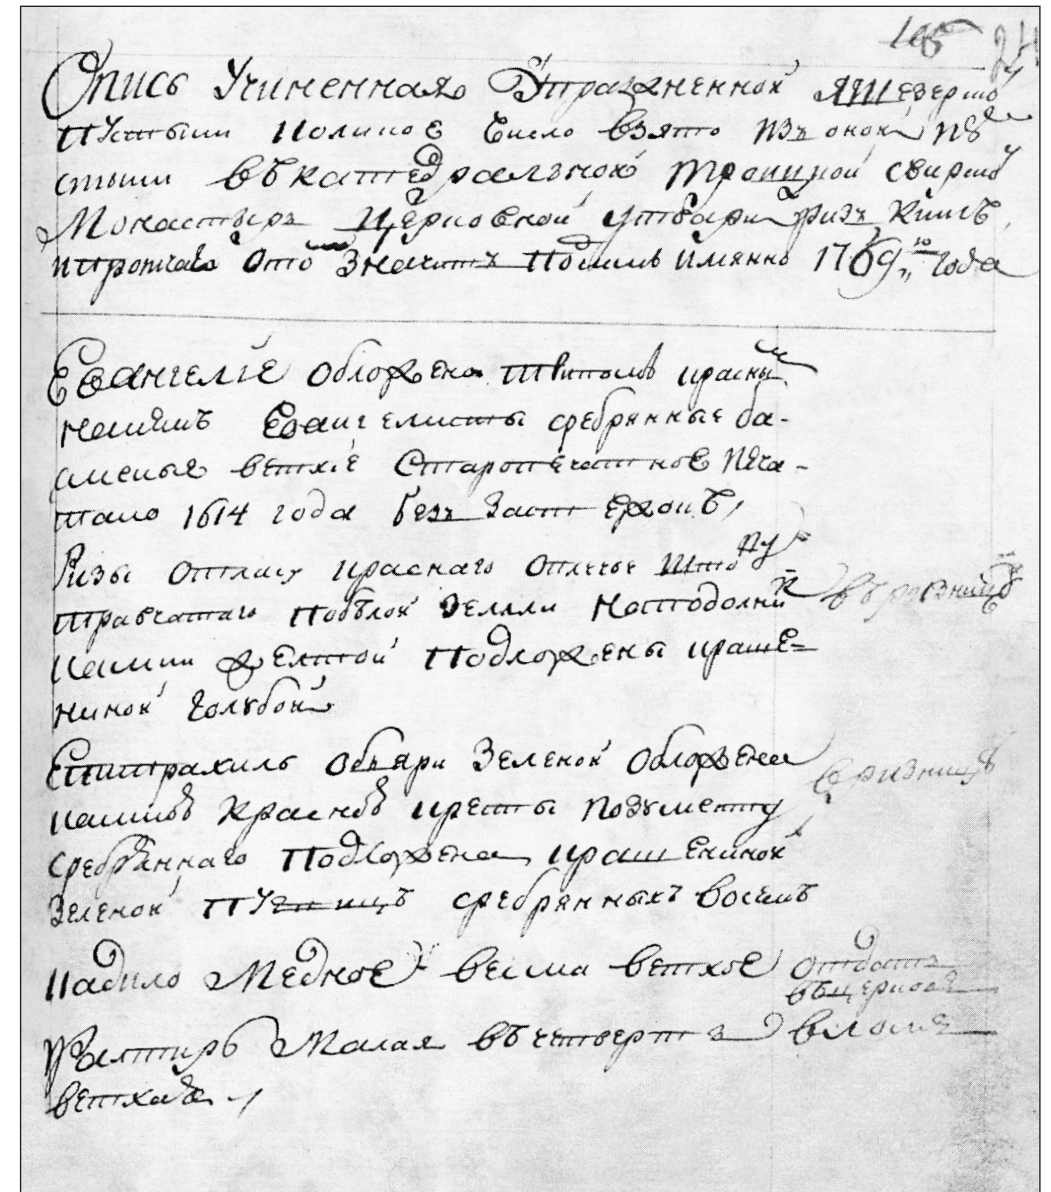 Опись Учиненная Упраженной Яшезерской
пустыни коликое число взято изъ оной пу
стыни въ катедральной Троицкой свирской
Монастырь церковной утвари ризъ книгъ
и протчаго о том значитъ под симъ имянно 1769 го года
Евангелие обложена красны
камкамъ Евангелисты сребрянные ба-
сменыя ветхие Старопечатное печа-
тано 1614 года безъ застежокъ
Ризы отласу краснаго оплечье штофу
травчатаго побелой земли на подолни
камки желтой подложены краше-
нинои голубой
въ ризницъ
Епитрахиль объяри зеленой обложена
камкою красною кресты позументу
сребряннаго подложена крашенинои
зеленой пугвицъ сребрянныхъ восимъ
в ризницъ
Кадило Медное весма ветхое
отдать
въ церковь
Псалтирь Малая въ четверть
ветхая